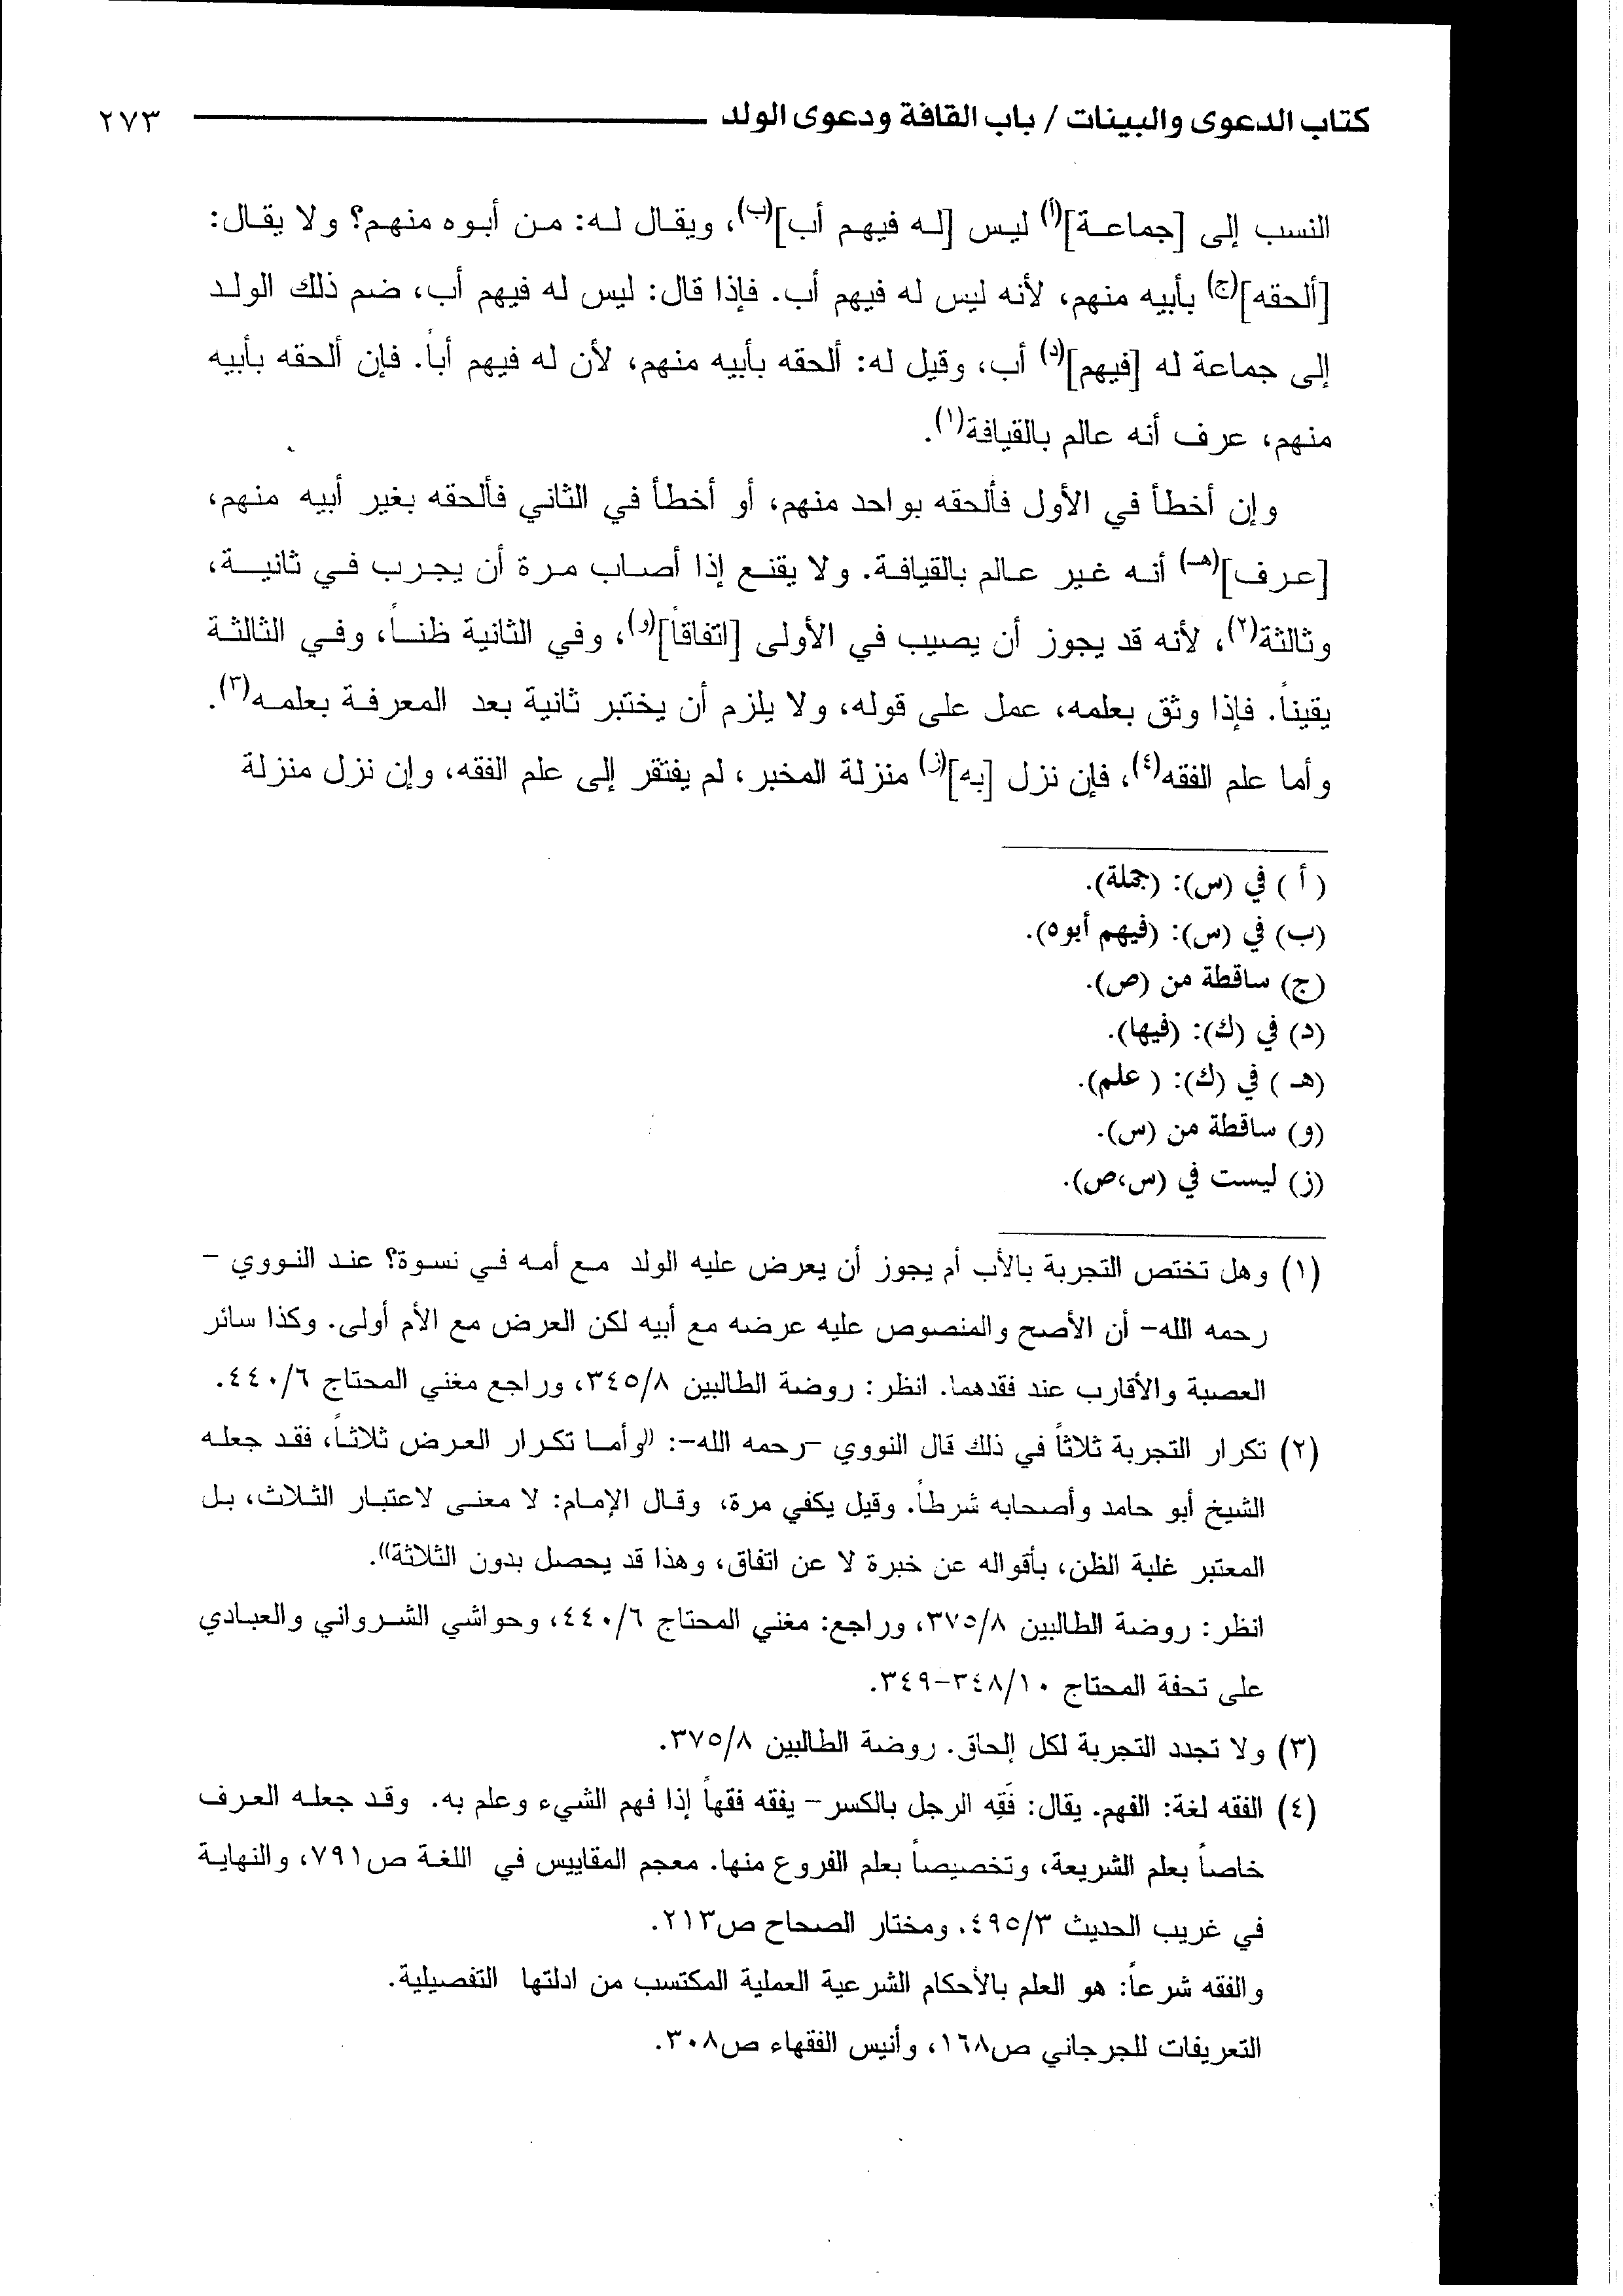 كتاب الدعوى والبينات / باب القافة ودعوى الولد ٢٧٣
النسب إلى [جماعة](أ) ليس [له فيهم أب](ب)، ويقال له: من أبوه منهم؟ ولا يقال:
[ألحقه](ج) بأبيه منهم، لأنه ليس له فيهم أب. فإذا قال: ليس له فيهم أب، ضم ذلك الولد
إلى جماعة له [فيهم](د) أب، وقيل له: ألحقه بأبيه منهم، لأن له فيهم أباً. فإن ألحقه بأبيه
منهم، عرف أنه عالم بالقيافة(١).
وإن أخطأ في الأول فألحقه بواحد منهم، أو أخطأ في الثاني فألحقه بغير أبيه منهم،
[عرف](هـ) أنه غير عالم بالقيافة. ولا يقنع إذا أصاب مرة أن يجرب في ثانية،
وثالثة(٢)، لأنه قد يجوز أن يصيب في الأولى [اتفاقاً](و)، وفي الثانية ظناً، وفي الثالثة
يقيناً. فإذا وثق بعلمه، عمل على قوله، ولا يلزم أن يختبر ثانية بعد المعرفة بعلمه(٣).
وأما علم الفقه(٤)، فإن نزل [به](ز) منزلة المخبر، لم يفتقر إلى علم الفقه، وإن نزل منزلة
( أ ) في (س): (جملة).
(ب) في (س): (فيهم أبوه).
(ج) ساقطة من (ص).
(د) في (ك): (فيها).
(هـ ) في (ك): ( علم).
(و) ساقطة من (س).
(ز) ليست في (س،ص).
(١) وهل تختص التجربة بالأب أم يجوز أن يعرض عليه الولد مع أمه في نسوة؟ عند النووي -
رحمه الله- أن الأصح والمنصوص عليه عرضه مع أبيه لكن العرض مع الأم أولى. وكذا سائر
العصبة والأقارب عند فقدهما. انظر: روضة الطالبين ٣٤٥/٨، وراجع مغني المحتاج ٤٤٠/٦.
(٢) تكرار التجربة ثلاثاً في ذلك قال النووي -رحمه الله-: ((وأما تكرار العرض ثلاثاً، فقد جعله
الشيخ أبو حامد وأصحابه شرطاً. وقيل يكفي مرة، وقال الإمام: لا معنى لاعتبار الثلاث، بل
المعتبر غلبة الظن، بأقواله عن خبرة لا عن اتفاق، وهذا قد يحصل بدون الثلاثة)).
انظر: روضة الطالبين ٣٧٥/٨، وراجع: مغني المحتاج ٤٤٠/٦، وحواشي الشرواني والعبادي
على تحفة المحتاج ٣٤٨/١٠-٣٤٩.
(٣) ولا تجدد التجربة لكل إلحاق. روضة الطالبين ٣٧٥/٨.
(٤) الفقه لغة: الفهم. يقال: فَقِه الرجل بالكسر- يفقه فقهاً إذا فهم الشيء وعلم به. وقد جعله العرف
خاصاً بعلم الشريعة، وتخصيصاً بعلم الفروع منها. معجم المقاييس في اللغة ص٧٩١، والنهاية
في غريب الحديث ٤٩٥/٣. ومختار الصحاح ص٢١٣.
والفقه شرعاً: هو العلم بالأحكام الشرعية العملية المكتسب من ادلتها التفصيلية.
التعريفات للجرجاني ص١٦٨، وأنيس الفقهاء ص٣٠٨.